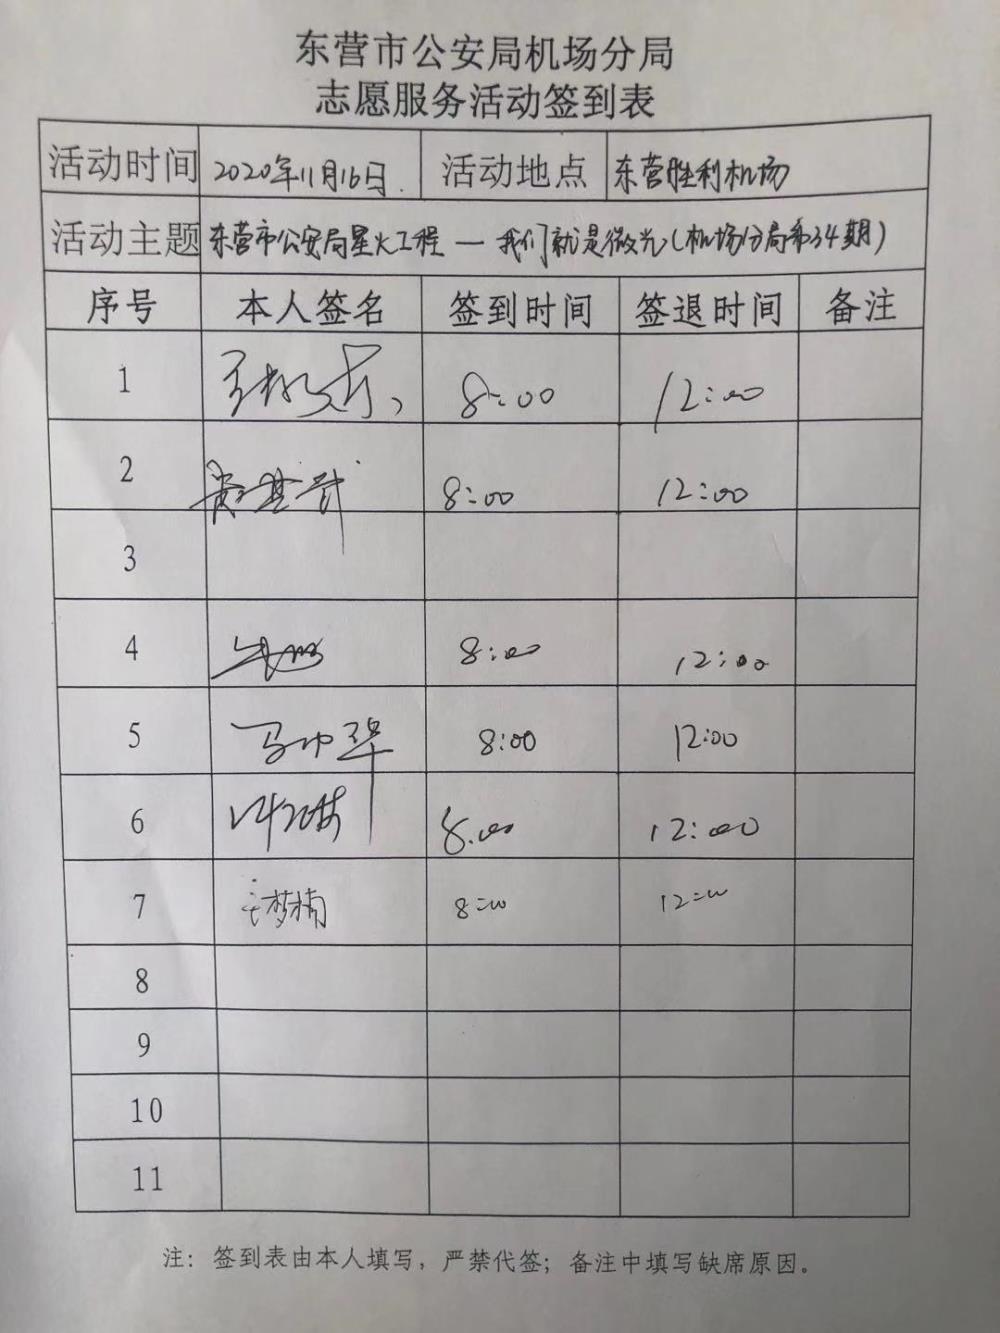 东营市公安局机场分局
志愿服务活动签到表
活动时间 2020年11月16日. 活动地点 东营胜利机场
活动主题 东营市公安局星火工程 — 我们就是微光(机场分局第34期)
序号 本人签名 签到时间 签退时间 备注
1 8:00 12:00
2 8:00 12:00
3
4 8:00 12:00
5 8:00 12:00
6 8:00 12:00
7 王梦楠 8:00 12:00
8
9
10
11
注：签到表由本人填写，严禁代签；备注中填写缺席原因。